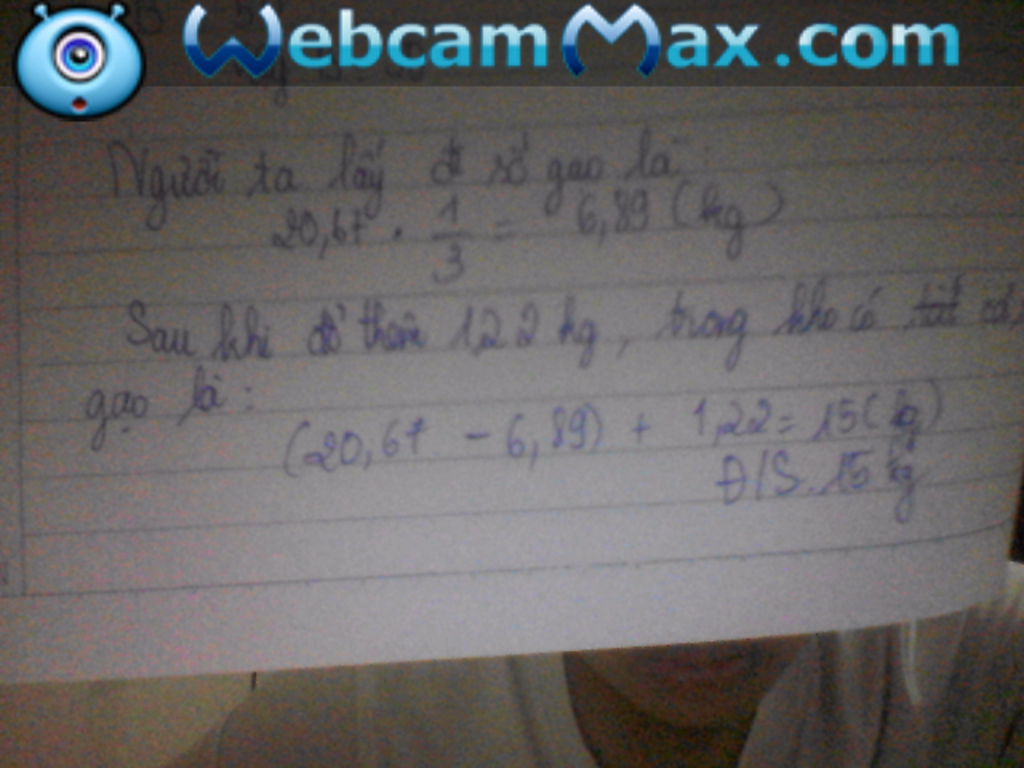 WebcamMax.com
Người ta lấy đi số gạo là:
20,67 . 1/3 = 6,89 (kg)
Sau khi đổ thêm 1,22 kg, trong kho có tất cả
gạo là:
(20,67 - 6,89) + 1,22 = 15 (kg)
Đ/S. 15 kg